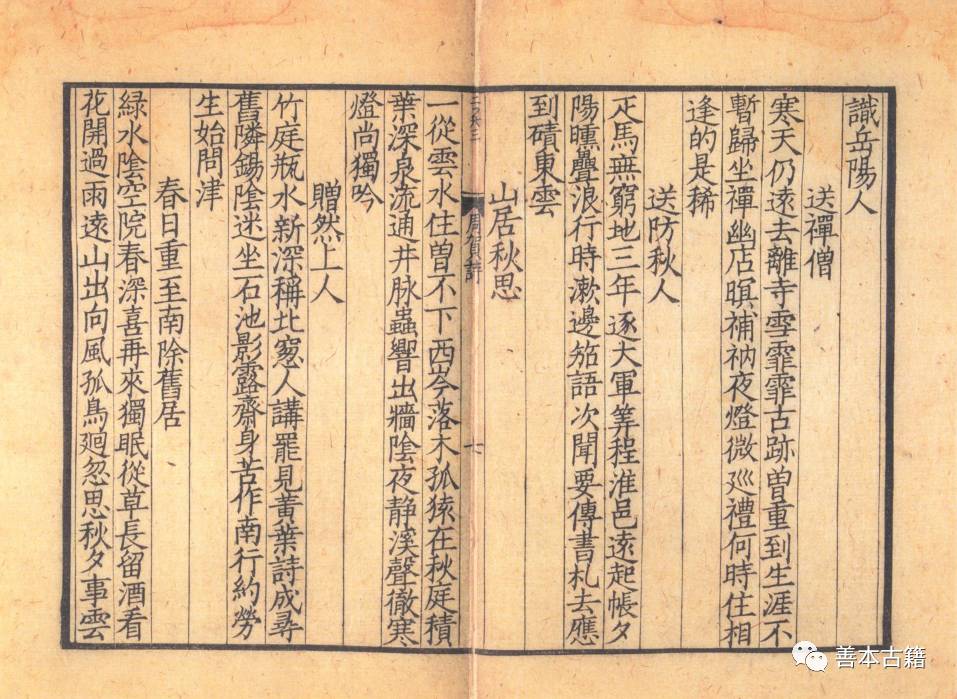 識岳陽人
送禪僧
寒天仍遠去離寺雪霏霏古跡曽重到生涯不
暫歸坐禪幽店暝補衲夜燈微廵禮何時住相
逢的是稀
送防秋人
疋馬無窮地三年逐大軍筭程淮邑遠起帳夕
陽曛疊浪行時漱邊笳語次聞要傳書札去應
到磧東雲
山居秋思
周賀詩
十
一從雲水住曽不下西岑落木孤猿在秋庭積
葉深泉流通井脉蟲響出牆陰夜静溪聲徹寒
燈尚獨吟
贈然上人
竹庭瓶水新深稱北窓人講罷見黃葉詩成尋
舊隣錫陰迷坐石池影露齋身苦作南行約勞
生始問津
春日重至南除舊居
緑水陰空院春深喜再來獨眠從草長留酒看
花開過雨遠山出向風孤鳥廻忽思秋夕事雲
善本古籍